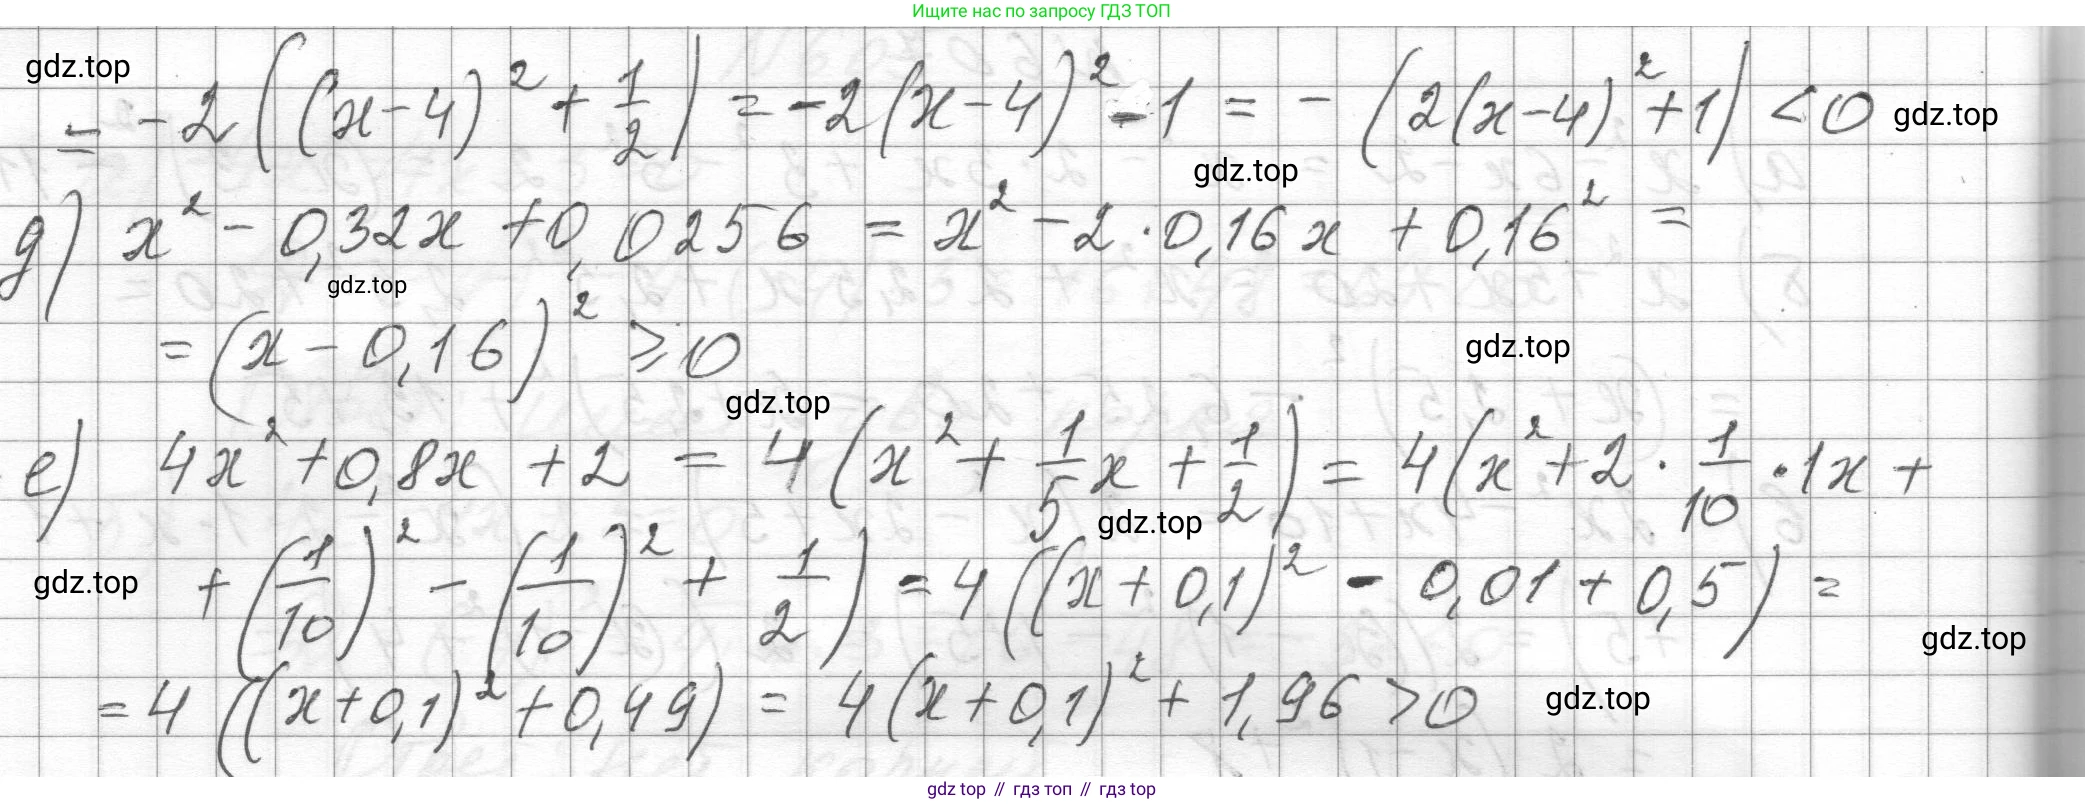 Ищите нас по запросу ГДЗ ТОП
gdz.top
= -2((x-4)² + 1/2) = -2(x-4)² - 1 = -(2(x-4)² + 1) < 0 gdz.top
gdz.top
g) x² - 0,32x + 0,0256 = x² - 2·0,16x + 0,16² =
gdz.top
= (x - 0,16)² ⩾ 0 gdz.top
gdz.top
e) 4x² + 0,8x + 2 = 4(x² + 1/5x + 1/2) = 4(x² + 2·1/10·1x +
gdz.top
gdz.top + (1/10)² - (1/10)² + 1/2) = 4((x+0,1)² - 0,01 + 0,5) =
gdz.top
= 4((x+0,1)² + 0,49) = 4(x+0,1)² + 1,96 > 0 gdz.top
gdz top // гдз топ // гдз top